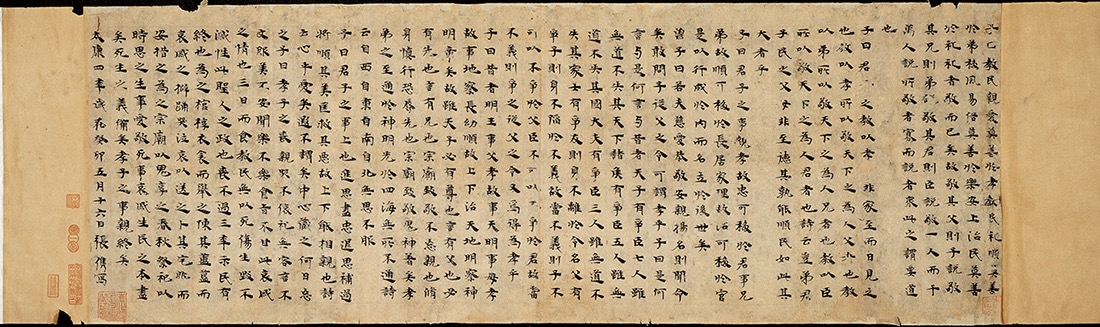 子曰教民親愛莫善於孝教民礼順莫善
於弟移風易俗莫善於樂安上治民莫善
於礼礼者敬而已矣故敬其父則子說敬
其兄則弟說敬其君則臣說敬一人而千
萬人說所敬者寡而說者衆此之謂要道
也
子曰 之教以孝 非家至而日見之
也教以孝所以敬天下之為人父者也教
以弟所以敬天下之為人兄者也教以臣
所以敬天下之為人君者也詩云豈弟君
子民之父母非至德其孰能順民如此其
大者乎
子曰君子之事親孝故忠可移於君事兄
弟故順可移於長居家理故治可移於官
是以行成於內而名立於後世矣
曾子曰若夫慈愛恭敬安親揚名則聞命
矣敢問子從父之令可謂孝乎子曰是何
言与是何言与昔者天子有爭臣七人雖
無道不失其天下諸侯有爭臣五人雖無
道不失其國大夫有爭臣三人雖無道不
失其家士有爭友則身不離於令名父有
爭子則身不陷於不義故當不義則子不
可以不爭於父臣不可以不爭於君故當
不義則爭之從父之令又焉得為孝乎
子曰昔者明王事父孝故事天明事母孝
故事地察長幼順故上下治天地明察神
明章矣故雖天子必有尊也言有父也必
有先也言有兄也宗廟致敬不忘親也脩
身慎行恐辱先也宗廟致敬鬼神著矣孝
弟之至通於神明光於四海無所不通詩
云自西自東自南自北無思不服
子曰君子之事上也進思盡忠退思補過
將順其美匡救其惡故上下能相親也詩
云心乎愛矣遐不謂矣中心藏之何日忘
之子曰孝子之喪親哭不偯礼無容言不
文服美不安聞樂不樂食旨不甘此哀慼
之情也三日而食教民無以死傷生毀不
滅性此聖人之政也喪不過三年示民有
終也為之棺椁衣衾而舉之陳其簠簋而
哀慼之擗踊哭泣哀以送之卜其宅兆而
安措之為之宗廟以鬼享之春秋祭祀以
時思之生事愛敬死事哀慼生民之本盡
矣死生之義備矣孝子之事親終矣
太康四年歲在癸卯五月十六日張儁寫